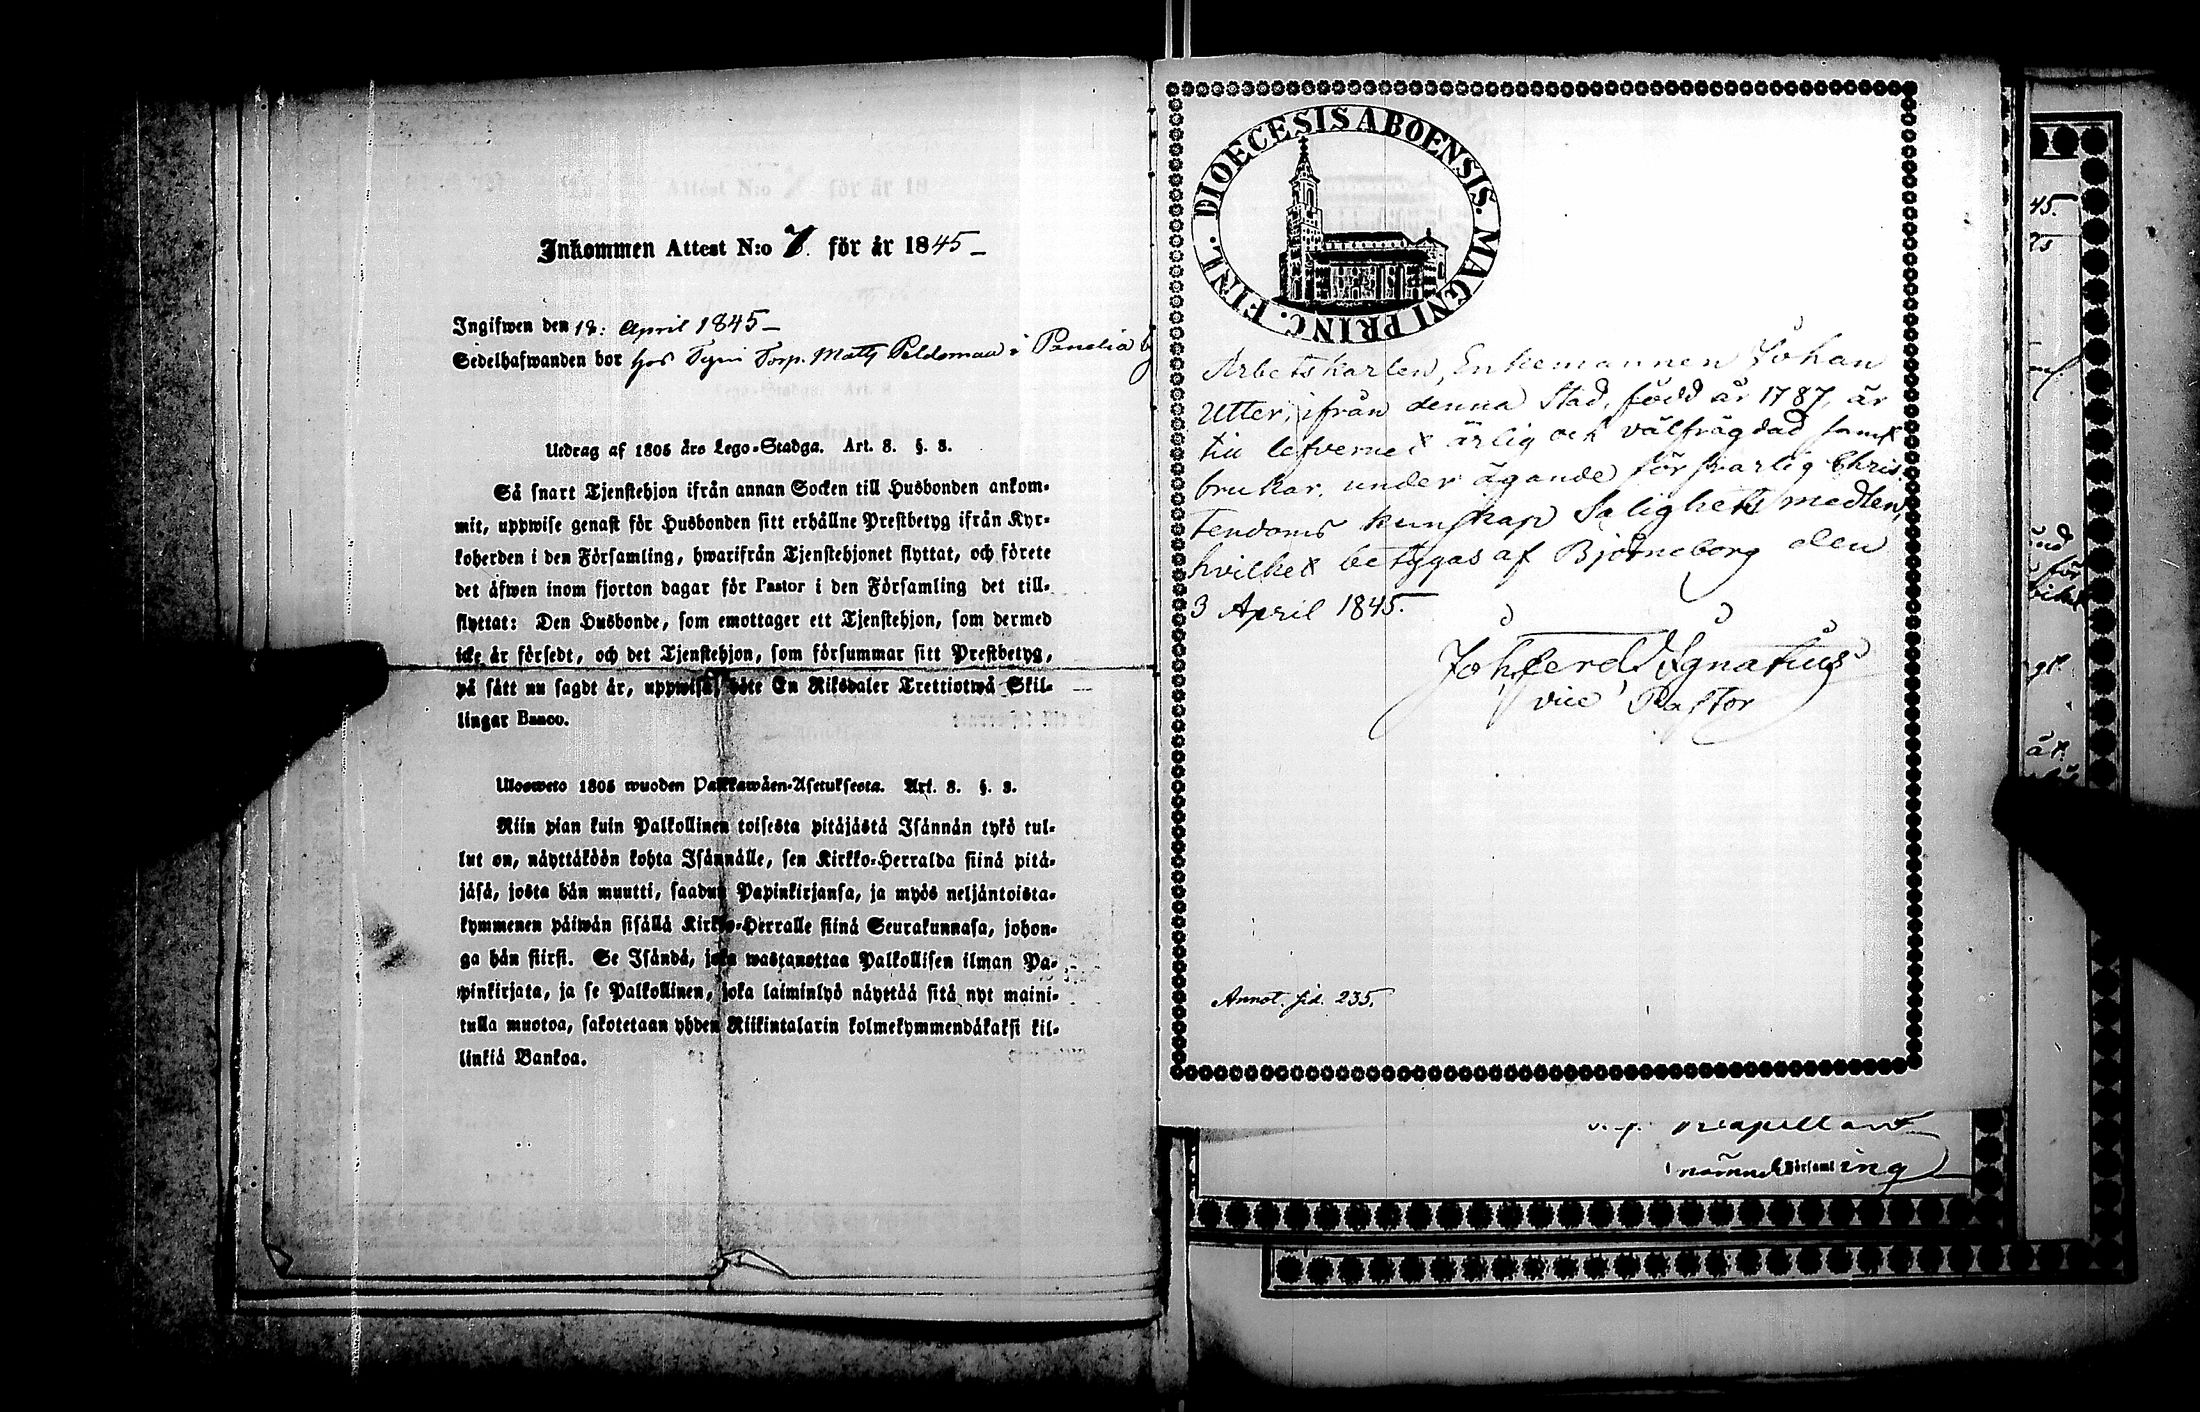 Inkommen Attest N:o 7. för år 1845 –
Ingifwen den 18: April 1845 –
Sedelhafwanden bor hos Torp. Matts Peldomaa i Penelia by
Utdrag af 1805 års Lego-Stadga. Art. 8. §. 3.
Så snart Tjenstehjon ifrån annan Socken till Husbonden ankom-
mit, uppwise genast för Husbonden sitt erhållne Prestbetyg ifrån Kyr-
koherden i den Församling, hwarifrån Tjenstehjonet flyttat, och förete
det äfwen inom fjorton dagar för Pastor i den Församling det till-
flyttat: Den Husbonde, som emottager ett Tjenstehjon, som dermed
icke är försedt, och det Tjenstehjon, som försummar sitt Prestbetyg,
på sätt nu sagdt är, uppwisa, böte En Riksdaler Trettiotwå Skil-
lingar Banco.
Ulosweto 1805 wuoden Palkkawäen-Asetuksesta. Art. 8. §. 3.
Niin pian kuin Palkollinen toisesta pitäjästä Isännän tykö tul-
lut on, näyttäköön kohta Isännälle, sen Kirkko-Herralda siinä pitä-
jäsä, josta hän muutti, saadun Papinkirjansa, ja myös neljäntoista-
kymmenen päiwän sisällä Kirkko-Herralle siinä Seurakunnasa, johon-
ga hän siirsi. Se Isändä, joka wastanottaa Palkollisen ilman Pa-
pinkirjata, ja se Palkollinen, joka laiminlyö näyttää sitä nyt maini-
tulla muotoa, sakotetaan yhden Riikintalarin kolmekymmendäkaksi kil-
linkiä Bankoa.
DIOECESIS ABOENSIS. MAGNI PRINC. FINL.
Arbetskarlen, Enkemannen Johan
Utter, ifrån denna Stad, född år 1787, är
till lefvernet ärlig och välfrägdad samt
brukar, under ägande försvarlig Chris-
tendoms kunskap Salighets medlen,
hvilket betygas af Björneborg den
3 April 1845.
Joh Ferd Ignatius
vice Pastor
Annot. sid. 235.
v. p. Capellan
Församling